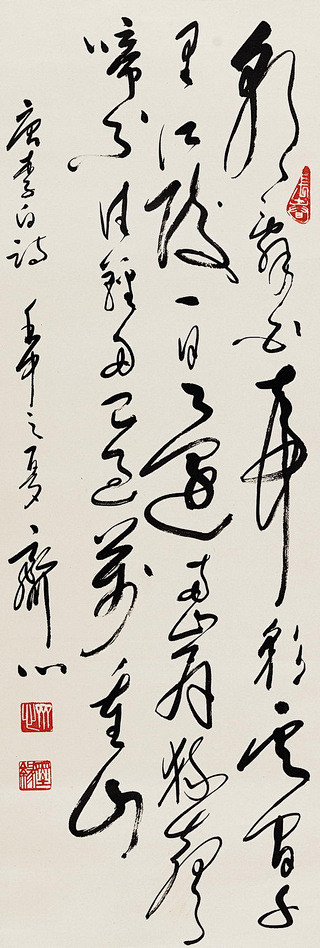 朝辭白帝彩雲間千
里江陵一日還兩岸猿聲
啼不住輕舟已過萬重山
唐李白詩 壬 之夏 齊心